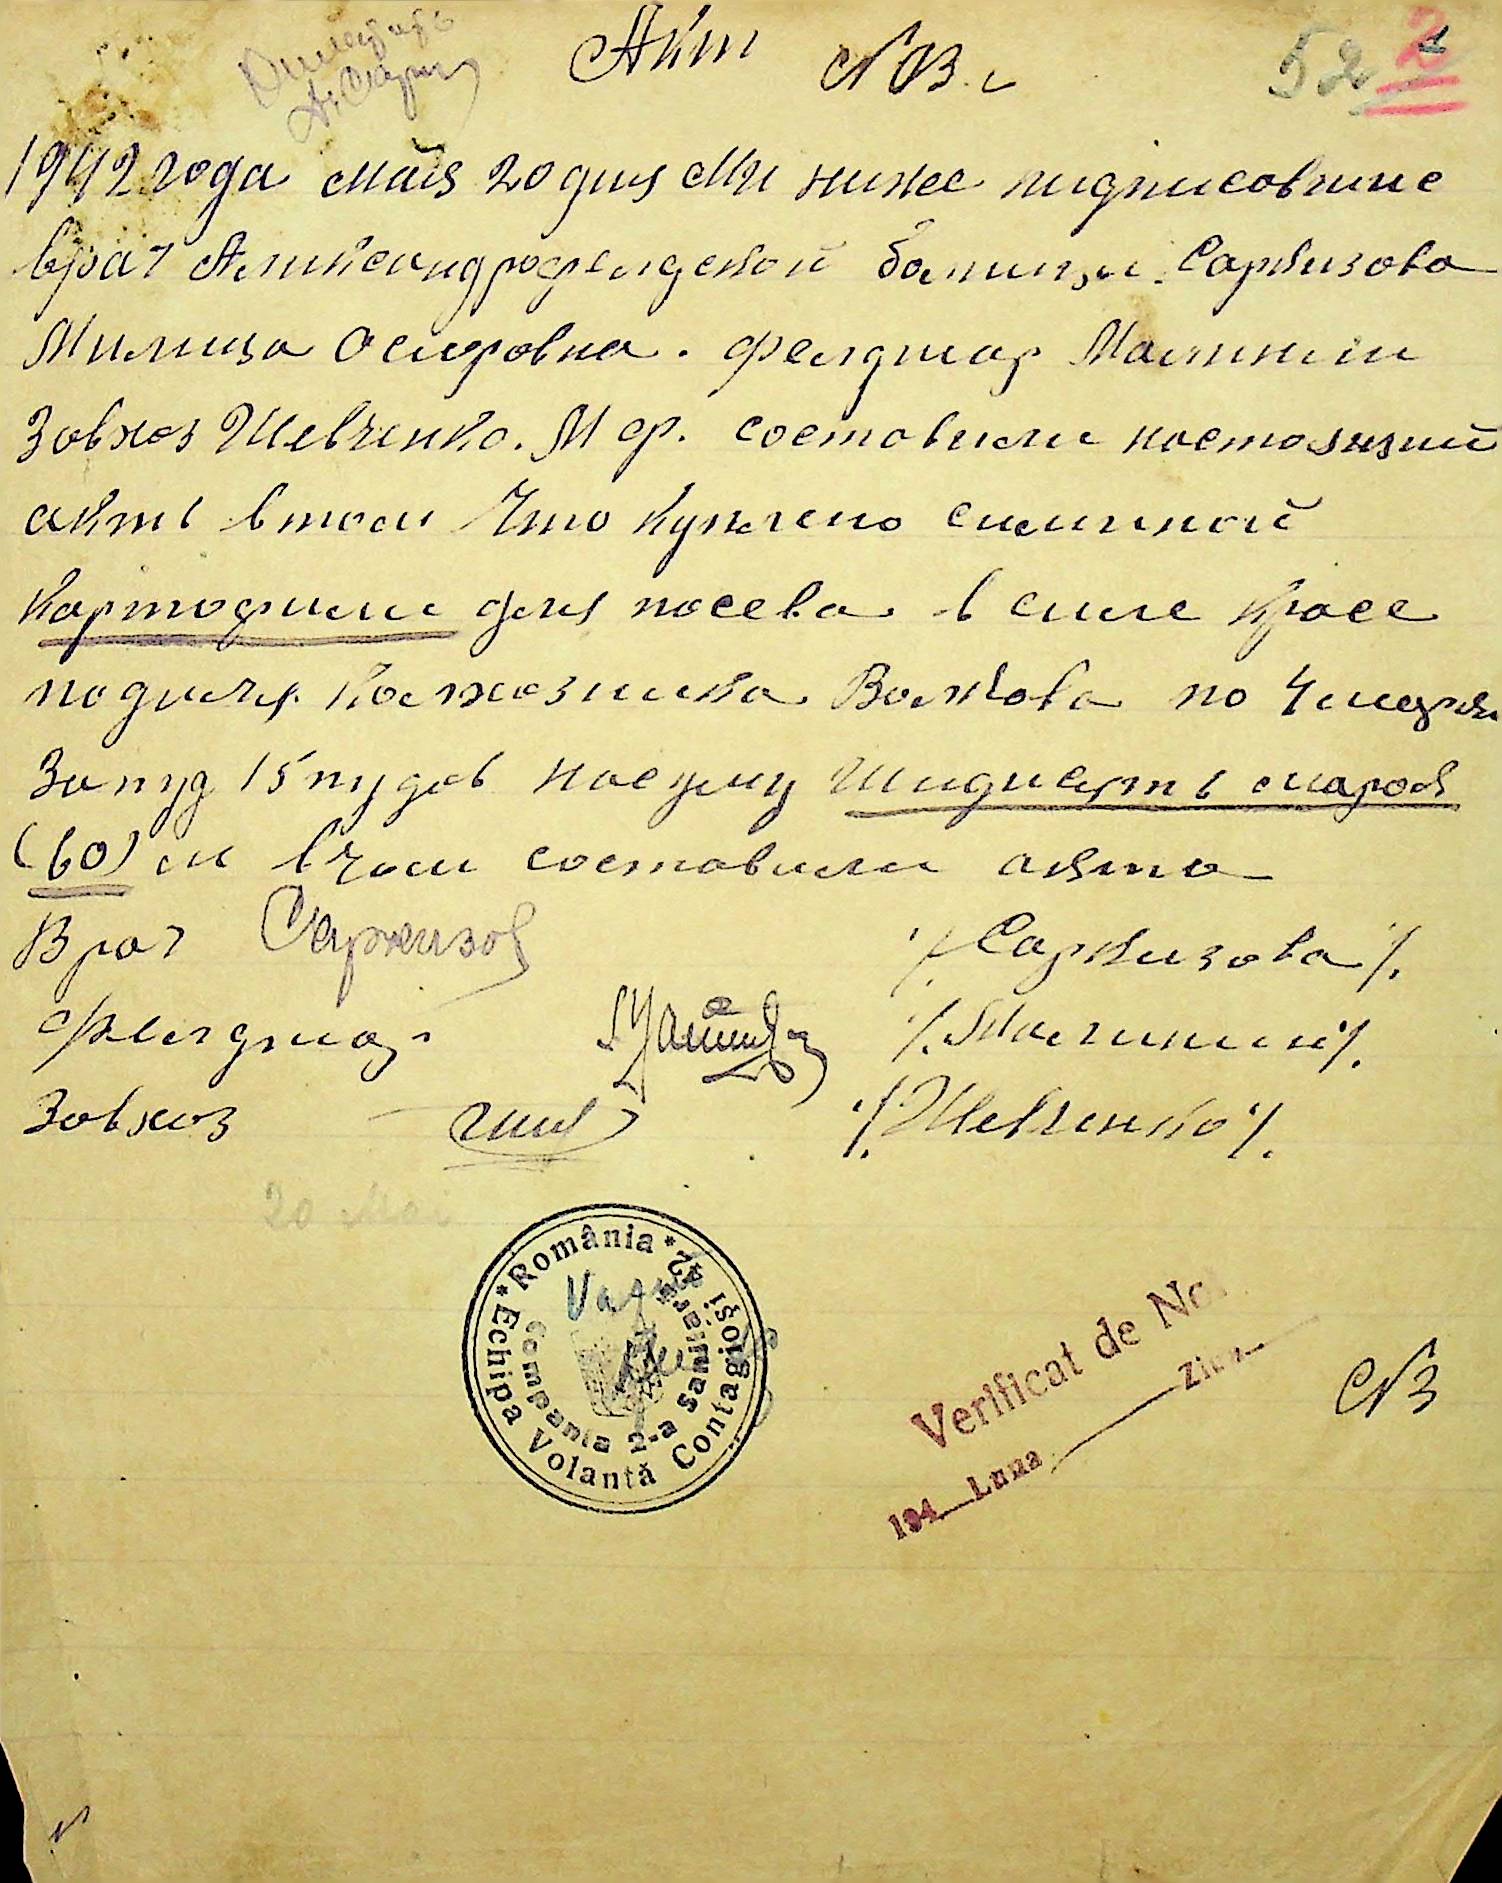 Акт № 3.
52 2
1942 года мая 20 дня Ми ниже підписовшие
Врач Александрофелдской болници. Саркизова
Милица Осиповна. Фелдшар Малинин
Завхоз Шевченко. М Ф. составили настоящий
актъ втом что куплено симиной
картофили для посева в силе Крас
подиля колхозника Волкова по 4 марки
за пуд 15 пудов насуму шидисят марок
(60) м вчом составили акта
Врач Саркизов /. Саркизова /.
Фелдшар /. Малинин /.
Завхоз Шев /. Шевченко /.
20 Mai
* România * 42
Echipa Volantă Contagioși
Compania 2-a Sanitară
Verificat de No.
194 Luna Ziua
№ 3